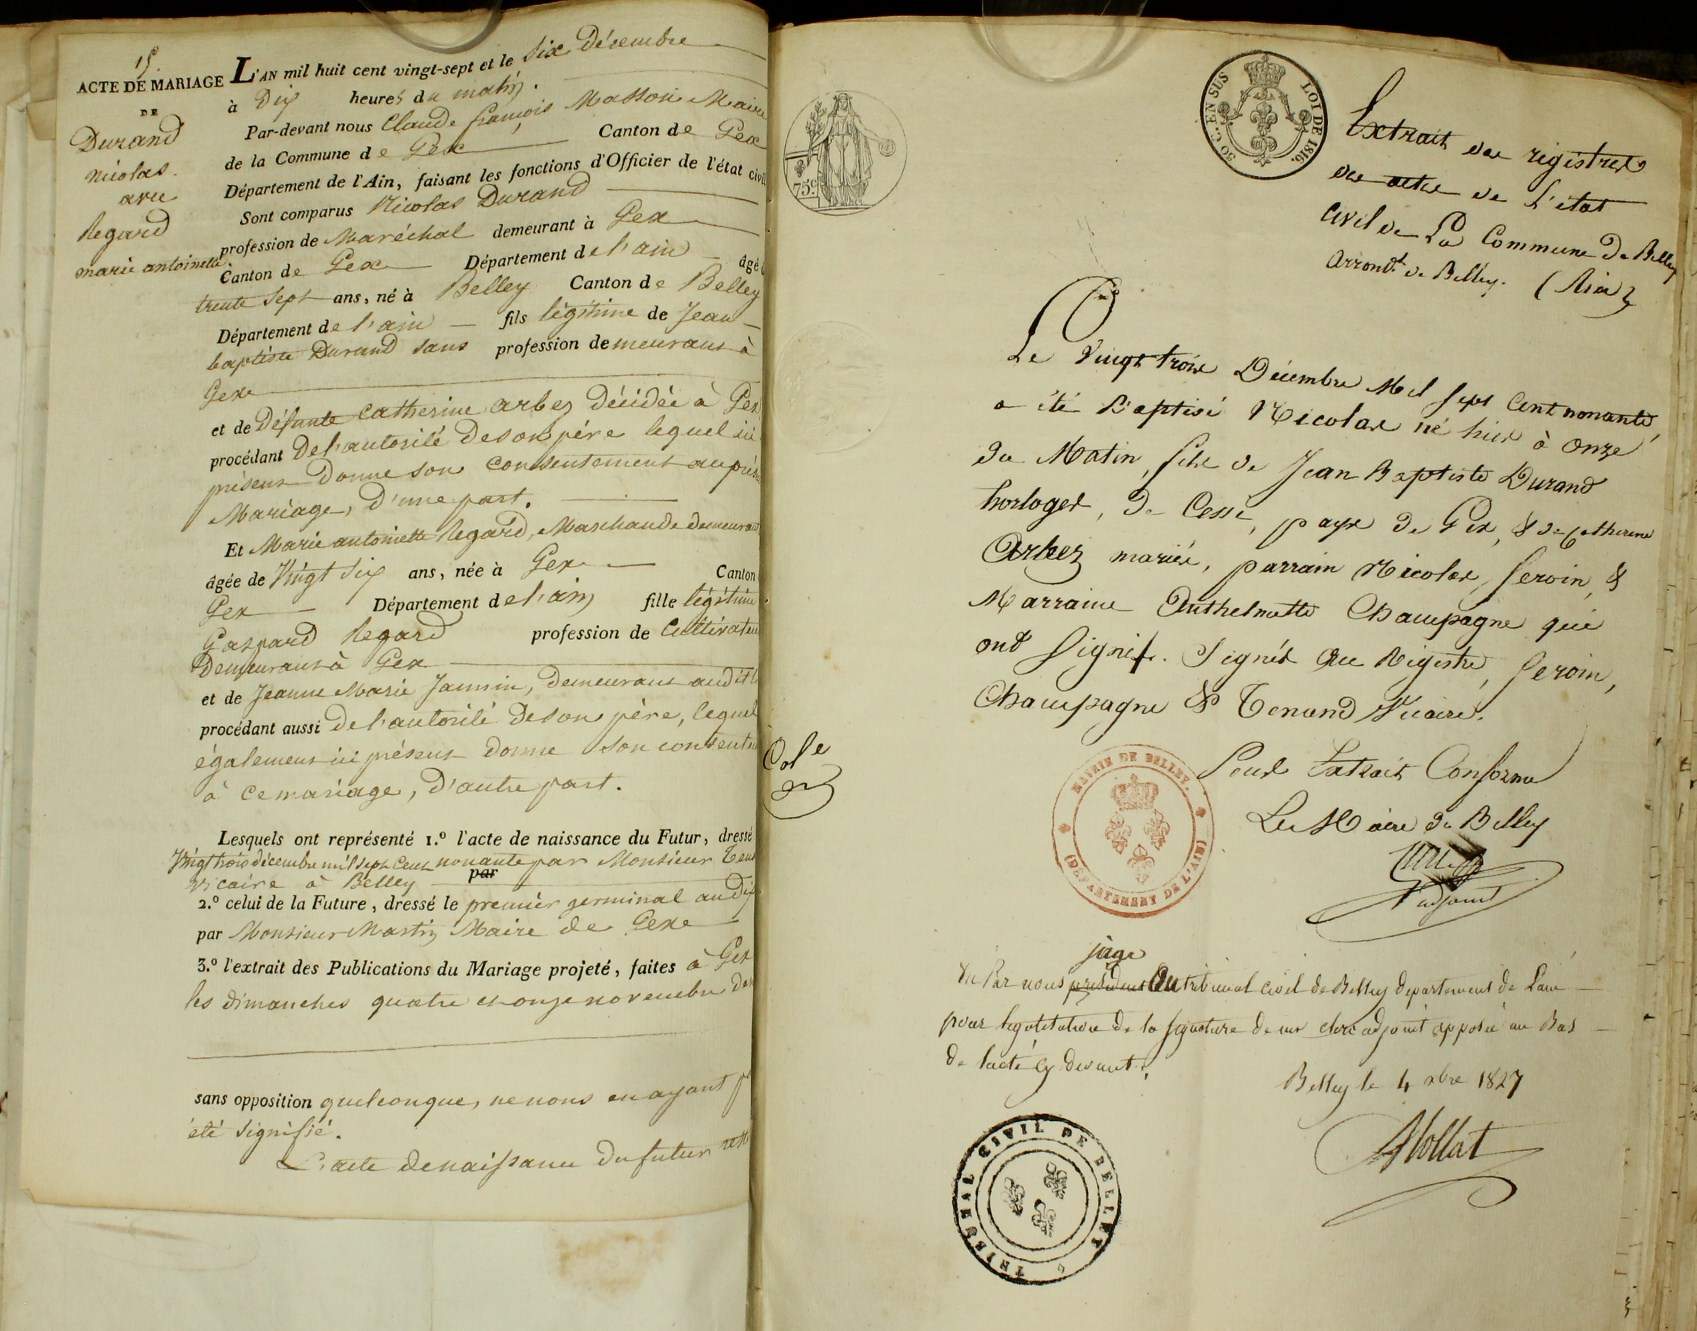 15
ACTE DE MARIAGE
DE
Durand
nicolas
avec
Regard
marie antoinette
L'AN mil huit cent vingt-sept et le six décembre
à Dix heures du matin.
Par-devant nous Claude françois Masson Maire
de la Commune de Gex Canton de Gex
Département de l'Ain, faisant les fonctions d'Officier de l'état civil
Sont comparus Nicolas Durand
profession de Maréchal demeurant à Gex
Canton de Gex Département de l'ain âgé
trente sept ans, né à Belley Canton de Belley
Département de l'ain fils légitime de Jean
baptiste Durand sans profession demeurant à
Gex
et de Défunte Catherine arbez décédée à Gex
procédant De l'autorité de son père lequel ici
présent Donne son consentement au prés
Mariage, d'une part.
Et Marie antoinette Regard, Marchande demeurant
âgée de Vingt six ans, née à Gex Canton
Gex Département de l'ain fille légitime
Gaspard Regard profession de Cultivateur
Demeurant à Gex
et de Jeanne Marie Jannin, demeurant audit
procédant aussi De l'autorité de son père, lequel
également ici présent donne son consente
à ce mariage, d'autre part.
Lesquels ont représenté 1.º l'acte de naissance du Futur, dressé
Vingt trois décembre mil sept cent nonante par Monsieur Ten
par
vicaire à Belley
2.º celui de la Future, dressé le premier germinal an dix
par Monsieur Martin Maire de Gex
3.º l'extrait des Publications du Mariage projeté, faites à Gex
les dimanches quatre et onze novembre
sans opposition quelconque, ne nous en ayant p
été signifié.
L'acte de naissance du futur
75c
30 C. EN SUS
LOI DE 1816.
Extrait des registres
des actes de L'état
civil de La Commune de Belley
arrondt de Belley. (Ain)
Le Vingt trois Décembre Mil sept cent nonante,
a été Baptisé Nicolas né hier à onze
du Matin, fils de Jean Baptiste Durand
horloger, de Cessi, pays de Gex, & de Catherine
Arbez mariés, parrain Nicolas Seroin, &
Marraine Anthelmette Champagne qui
ont signés. Signés au Régistre, Seroin,
Champagne & Tenand Vicaire.
Pour Extrait Conforme
Le Maire de Belley
adjoint
Col le
MAIRIE DE BELLEY.
(DÉPARTEMENT DE L'AIN)
juge
Vu Par nous président Au tribunal civil de Belley département de L'ain
pour légalisation de la signature de mr adjoint apposée au Bas
de l'acte cy devant.
Belley le 4 xbre 1827
Mollat
TRIBUNAL CIVIL DE BELLEY